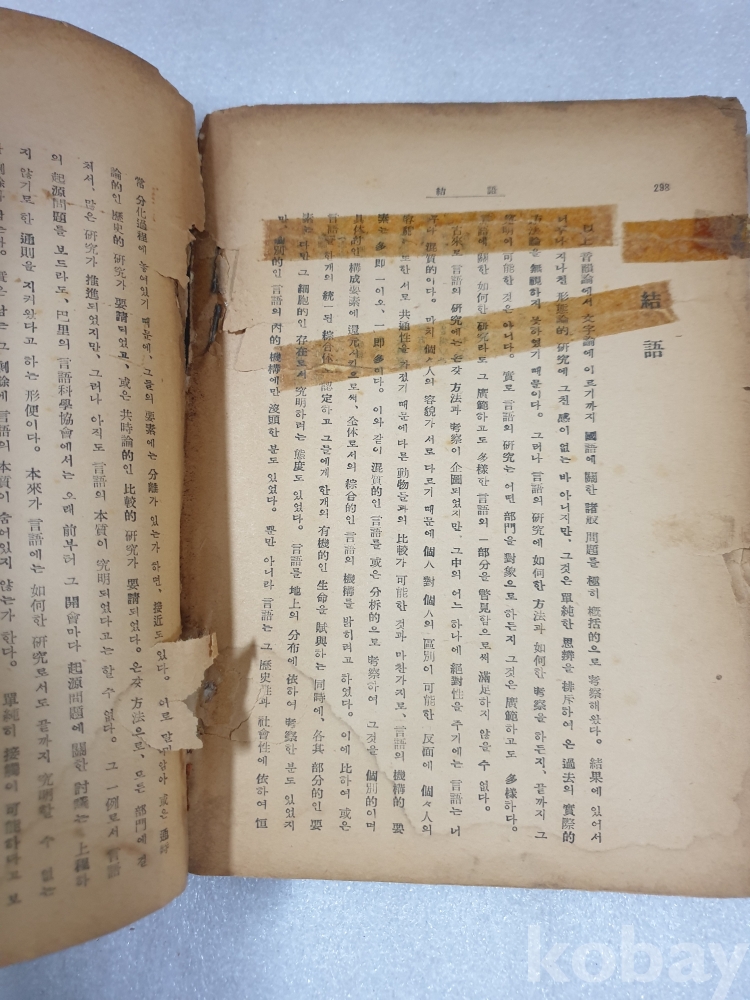 298
結語
結語
以上 音韻論에서 文字論에 이르기까지 國語에 關한 諸般 問題를 極히 槪括的으로 考察해왔다. 結果에 있어서
너무나 지나친 形態論的 研究에 그친 感이 없는 바 아니지만, 그것은 單純한 思辨을 排斥하여 온 過去의 實際的
方法論을 無視하지 못하였기 때문이다. 그러나 言語의 研究에 如何한 方法과 如何한 考察을 하든지, 끝까지 그
究明이 可能한 것은 아니다. 實로 言語의 研究는 어떤 部門을 對象으로 하든지 그것은 廣範하고도 多樣하다.
語에 關한 如何한 研究라도 그 廣範하고도 多樣한 言語의 一部分을 瞥見함으로써 滿足하지 않을 수 없다.
古來로 言語의 研究에는 온갖 方法과 考察이 企圖되었지만, 그中의 어느 하나에 絶對性을 주기에는 言語는 너
무나 混質的이다. 마치 個々人의 容貌가 서로 다르기 때문에 個人對 個人의 區別이 可能한 反面에 個々人의
容貌가 또한 서로 共通性을 가졌기 때문에 다른 動物들과의 比較가 可能한 것과 마찬가지로, 言語의 機構的 要
素는 多即一이오, 一即多이다. 이와 같이 混質的인 言語를 或은 分析的으로 考察하여 그것을 個別的이며
具体的인 構成要素에 還元시킴으로써, 全体로서의 綜合的인 言語의 機構를 밝히려고 하였다. 이에 比하여 或은
言語를 한개의 統一된 綜合体로 認定하고 그들에게 한개의 有機的인 生命을 賦與하는 同時에, 各其 部分的인 要
素는 다만 그 細胞的인 存在로서 究明하려는 態度도 있었다. 言語를 地上의 分布에 依하여 考察한 분도 있었지
만, 個別的인 言語의 內的 機構에만 沒頭한 분도 있었다. 뿐만 아니라 言語는 그 歷史性과 社會性에 依하여 恒
常 分化過程에 놓여있기 때문에, 그들의 要素에는 分離가 있는가 하면, 接近도 있다. 이로 말미암아 或은 通時
論的인 歷史的 研究가 要請되었고, 或은 共時論的인 比較的 研究가 要請되었다. 온갖 方法으로, 모든 部門에 걸
쳐서, 많은 研究가 推進되었지만, 그러나 아직도 言語의 本質이 究明되었다고는 할 수 없다. 그 一例로서 言語
의 起源問題를 보드라도, 巴里의 言語科學協會에서는 오래 前부터 그 開會마다 起源問題에 關한 討議는 上程하
지 않기로 한 通則을 지켜왔다고 하는 形便이다. 本來가 言語에는 如何한 研究로서도 끝까지 究明할 수 없는
言語의 本質이 숨어있지 않는가 한다. 單純히 接觸이 可能하다고 보
kobay